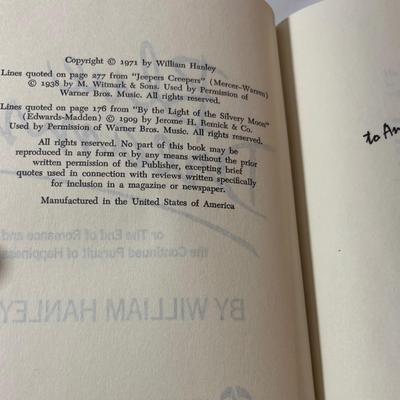 Copyright © 1971 by William Hanley
Lines quoted on page 277 from "Jeepers Creepers" (Mercer-Warren)
© 1938 by M. Witmark & Sons. Used by Permission of
Warner Bros. Music. All rights reserved.
Lines quoted on page 176 from "By the Light of the Silvery Moon"
(Edwards-Madden) © 1909 by Jerome H. Remick & Co.
Used by Permission of Warner Bros. Music. All rights reserved.
All rights reserved. No part of this book may be
reproduced in any form or by any means without the prior
written permission of the Publisher, excepting brief
quotes used in connection with reviews written specifically
for inclusion in a magazine or newspaper.
Manufactured in the United States of America
or The End of Romance and
the Continued Pursuit of Happiness
BY WILLIAM HANLEY
to An